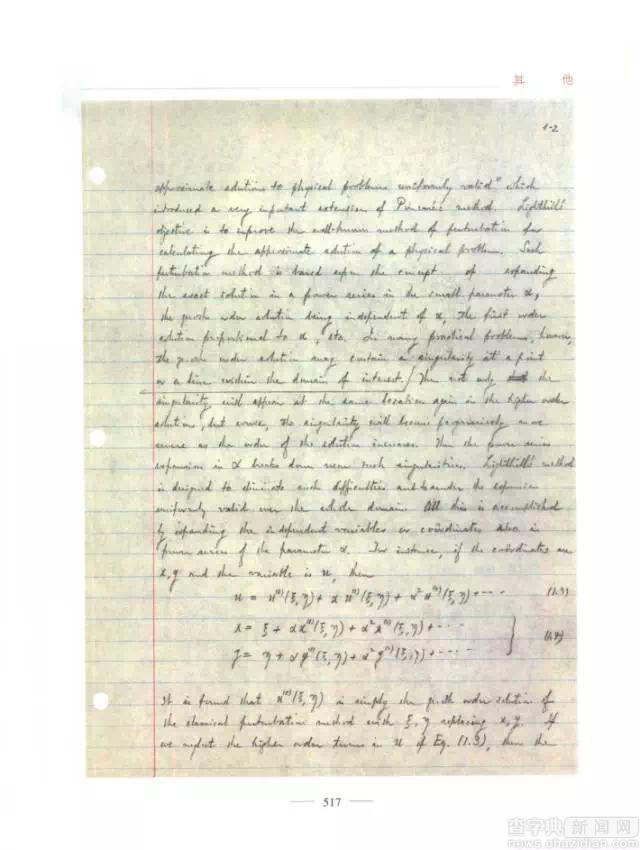 其 他
1-2
approximate solutions to physical problems uniformly valid" which
introduced a very important extension of Poincaré's method. Lighthill's
objective is to improve the well-known method of perturbation for
calculating the approximate solution of a physical problem. Such
perturbation method is based upon the concept of expanding
the exact solution in a power series in the small parameter α,
the zeroth order solution being independent of α, the first order
solution proportional to α, etc. In many practical problems, however,
the zeroth order solution may contain a singularity at a point
or a line within the domain of interest. Then not only the
singularity will appear at the same location again in the higher order
solutions, but worse, the singularity will become progressively more
severe as the order of the solution increases. Then the power series
expansion in α breaks down near such singularities. Lighthill's method
is designed to eliminate such difficulties and to render the expansion
uniformly valid over the whole domain. All this is accomplished
by expanding the independent variables or coördinates also in
power series of the parameter α. For instance, if the coördinates are
x, y and the variable is u, then
u = u⁽⁰⁾(ξ,η) + α u⁽¹⁾(ξ,η) + α² u⁽²⁾(ξ,η) + ···· (1.3)
x = ξ + α x⁽¹⁾(ξ,η) + α² x⁽²⁾(ξ,η) + ····
y = η + α y⁽¹⁾(ξ,η) + α² y⁽²⁾(ξ,η) + ···· (1.4)
It is found that u⁽⁰⁾(ξ,η) is simply the zeroth order solution of
the classical perturbation method with ξ, η replacing x, y. If
we neglect the higher order terms in u of Eq. (1.3), then the
— 517 —
查字典 新闻网
news.chazidian.com